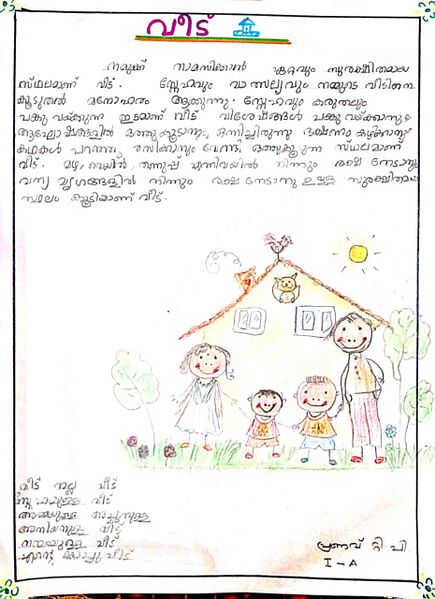 വീട്
നമുക്ക് താമസിക്കാൻ ഏറ്റവും സുരക്ഷിതമായ
സ്ഥലമാണ് വീട്. സ്നേഹവും വാത്സല്യവും നമ്മുടെ വീടിനെ
കൂടുതൽ മനോഹരം ആക്കുന്നു. സ്നേഹവും കരുതലും
പങ്കു വയ്ക്കുന്ന ഇടമാണ് വീട്. വിശേഷങ്ങൾ പങ്കു വയ്ക്കാനും
ആഘോഷങ്ങളിൽ ഒത്തുകൂടാനും, ഒന്നിച്ചിരുന്നു ഭക്ഷണം കഴിക്കാനും
കഥകൾ പറഞ്ഞു രസിക്കാനും വേണ്ടി ഒത്തുകൂടുന്ന സ്ഥലമാണ്
വീട്. മഴ, വെയിൽ, തണുപ്പ് എന്നിവയിൽ നിന്നും രക്ഷ നേടാനും
വന്യ മൃഗങ്ങളിൽ നിന്നും രക്ഷ നേടാനും ഉള്ള സുരക്ഷിതമായ
സ്ഥലം കൂടിയാണ് വീട്.
വീട് നല്ല വീട്
സ്നേഹമുള്ള വീട്
അമ്മയുള്ള അച്ഛനുള്ള
അനിയനുള്ള വീട്
നന്മയുള്ള വീട്
എന്റെ വീട്
പ്രണവ് ടി.പി
I-A